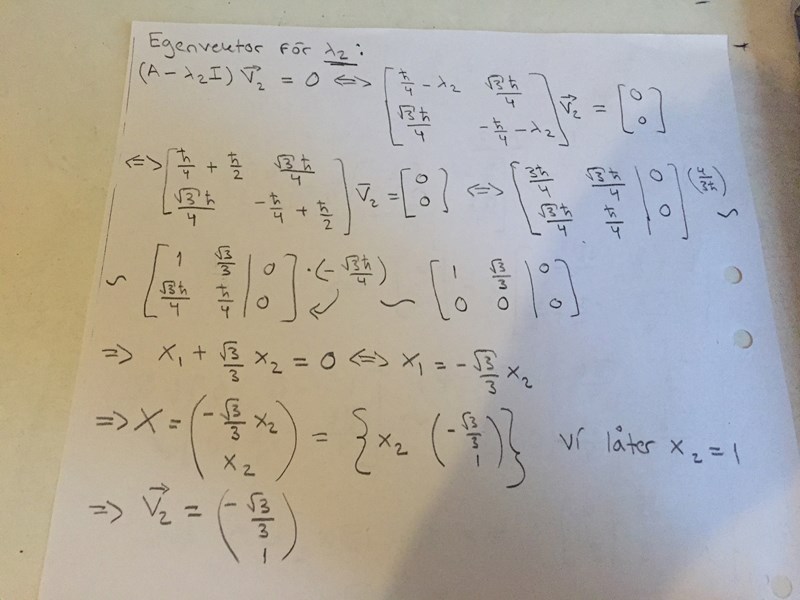 Egenvektor för λ₂:
(A - λ₂I) V⃗₂ = 0 ⟺ [ħ/4 - λ₂  √3ħ/4; √3ħ/4  -ħ/4 - λ₂] V⃗₂ = [0; 0]
⟺ [ħ/4 + ħ/2  √3ħ/4; √3ħ/4  -ħ/4 + ħ/2] V⃗₂ = [0; 0] ⟺ [3ħ/4  √3ħ/4 | 0; √3ħ/4  ħ/4 | 0] (4/3ħ) ~
~ [1  √3/3 | 0; √3ħ/4  ħ/4 | 0] ·(-√3ħ/4) ↙ ~ [1  √3/3 | 0; 0  0 | 0]
⇒ x₁ + √3/3 x₂ = 0 ⟺ x₁ = -√3/3 x₂
⇒ X = (-√3/3 x₂; x₂) = {x₂ (-√3/3; 1)} Vi låter x₂ = 1
⇒ V⃗₂ = (-√3/3; 1)